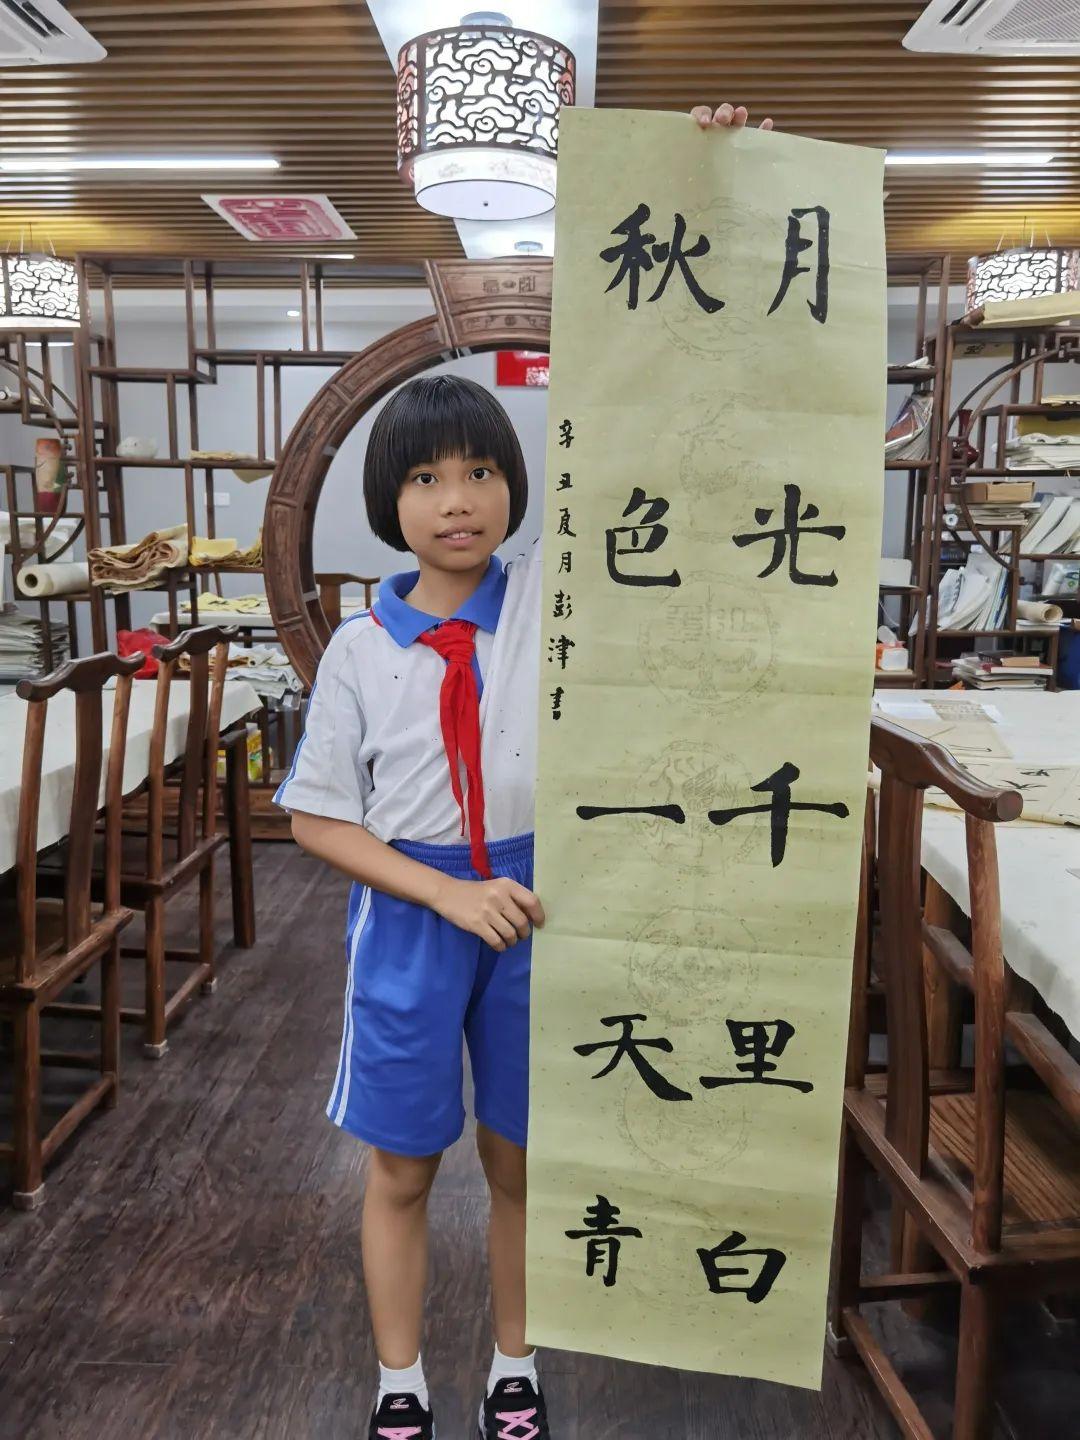 月光千里白
秋色一天青
辛丑夏月彭津書